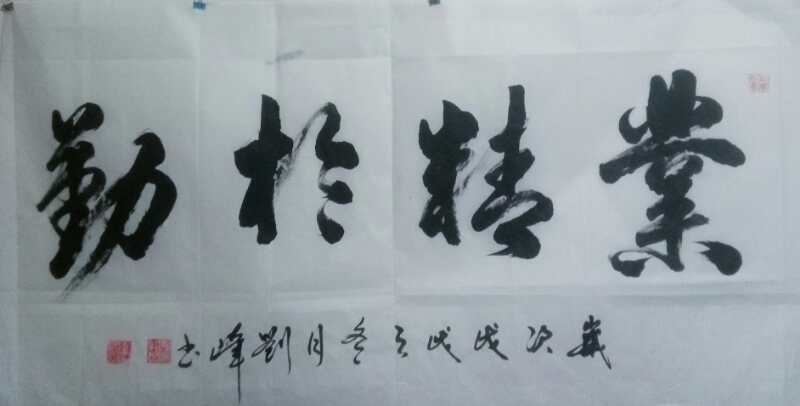 業精於勤
歲次戊戌之冬月劉峰书